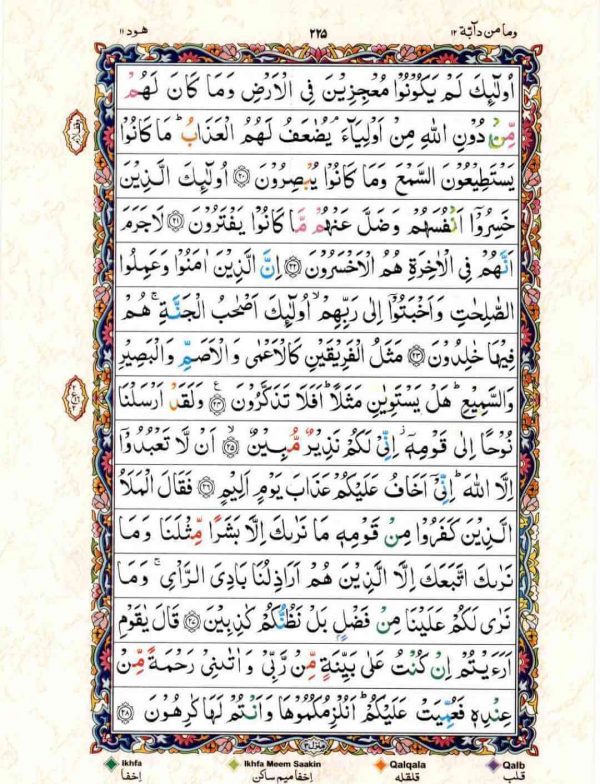 وما من دآبّة ۱۲
۲۲۵
هود ۱۱
اُولٰٓئِكَ لَمْ يَكُوْنُوْا مُعْجِزِيْنَ فِى الْاَرْضِ وَمَا كَانَ لَهُمْ
مِّنْ دُوْنِ اللّٰهِ مِنْ اَوْلِيَآءَ ۘ يُضٰعَفُ لَهُمُ الْعَذَابُ ؕ مَا كَانُوْا
يَسْتَطِيْعُوْنَ السَّمْعَ وَمَا كَانُوْا يُبْصِرُوْنَ ۝۲۰ اُولٰٓئِكَ الَّذِيْنَ
خَسِرُوْۤا اَنْفُسَهُمْ وَضَلَّ عَنْهُمْ مَّا كَانُوْا يَفْتَرُوْنَ ۝۲۱ لَاجَرَمَ
اَنَّهُمْ فِى الْاٰخِرَةِ هُمُ الْاَخْسَرُوْنَ ۝۲۲ اِنَّ الَّذِيْنَ اٰمَنُوْا وَعَمِلُوا
الصّٰلِحٰتِ وَاَخْبَتُوْۤا اِلٰى رَبِّهِمْ ۙ اُولٰٓئِكَ اَصْحٰبُ الْجَنَّةِ ۚ هُمْ
فِيْهَا خٰلِدُوْنَ ۝۲۳ مَثَلُ الْفَرِيْقَيْنِ كَالْاَعْمٰى وَالْاَصَمِّ وَالْبَصِيْرِ
وَالسَّمِيْعِ ؕ هَلْ يَسْتَوِيٰنِ مَثَلًا ؕ اَفَلَا تَذَكَّرُوْنَ ۝۲۴ وَلَقَدْ اَرْسَلْنَا
نُوْحًا اِلٰى قَوْمِهٖۤ ۫ اِنِّىْ لَكُمْ نَذِيْرٌ مُّبِيْنٌ ۝۲۵ اَنْ لَّا تَعْبُدُوْۤا
اِلَّا اللّٰهَ ؕ اِنِّىْۤ اَخَافُ عَلَيْكُمْ عَذَابَ يَوْمٍ اَلِيْمٍ ۝۲۶ فَقَالَ الْمَلَاُ
الَّذِيْنَ كَفَرُوْا مِنْ قَوْمِهٖ مَا نَرٰىكَ اِلَّا بَشَرًا مِّثْلَنَا وَمَا
نَرٰىكَ اتَّبَعَكَ اِلَّا الَّذِيْنَ هُمْ اَرَاذِلُنَا بَادِىَ الرَّاْىِ ۚ وَمَا
نَرٰى لَكُمْ عَلَيْنَا مِنْ فَضْلٍۢ بَلْ نَظُنُّكُمْ كٰذِبِيْنَ ۝۲۷ قَالَ يٰقَوْمِ
اَرَءَيْتُمْ اِنْ كُنْتُ عَلٰى بَيِّنَةٍ مِّنْ رَّبِّىْ وَاٰتٰىنِىْ رَحْمَةً مِّنْ
عِنْدِهٖ فَعُمِّيَتْ عَلَيْكُمْ ؕ اَنُلْزِمُكُمُوْهَا وَاَنْتُمْ لَهَا كٰرِهُوْنَ ۝۲۸
منزل ۳
Ikhfa Ikhfa Meem Saakin Qalqala Qalb
اِخفا اِخفا میم ساکن قلقله قلب